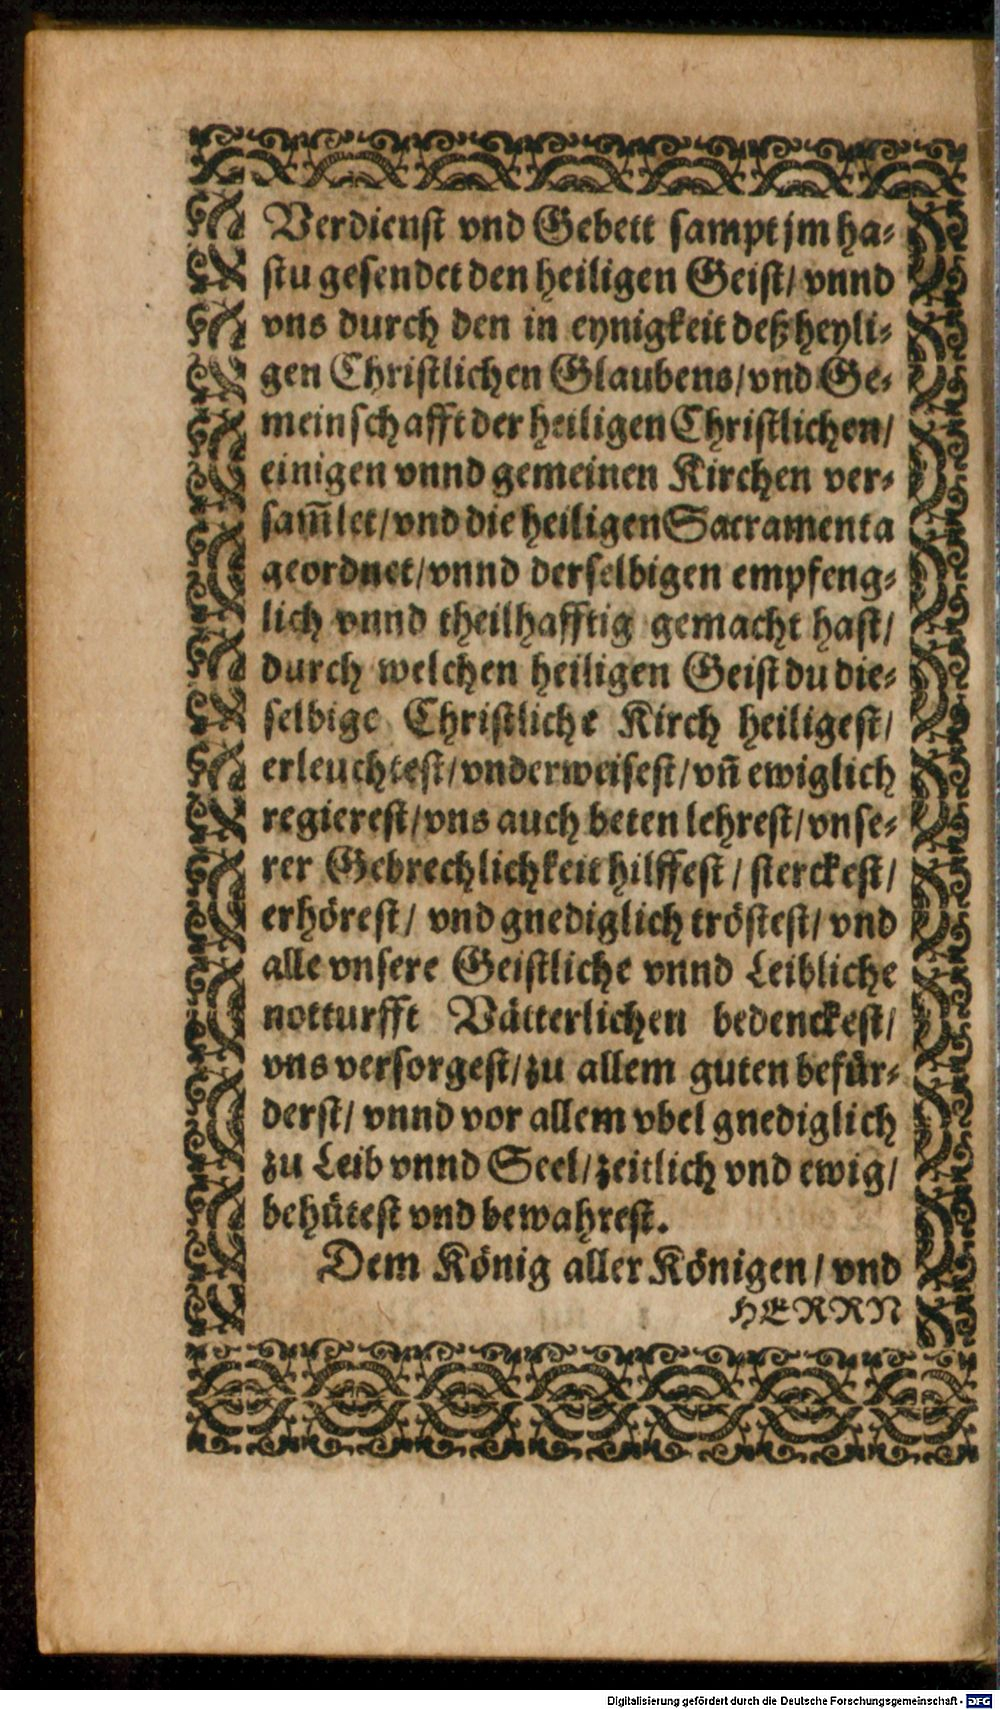 Verdienst vnd Gebett sampt jm ha-
stu gesendet den heiligen Geist/ vnnd
vns durch den in eynigkeit deß heyli-
gen Christlichen Glaubens/ vnd Ge-
meinschafft der heiligen Christlichen/
einigen vnnd gemeinen Kirchen ver-
sam̃let/ vnd die heiligen Sacramenta
geordnet/ vnnd derselbigen empfeng-
lich vnnd theilhafftig gemacht hast/
durch welchen heiligen Geist du die-
selbige Christliche Kirch heiligest/
erleuchtest/ vnderweisest/ vñ ewiglich
regierest/ vns auch beten lehrest/ vnse-
rer Gebrechlichkeit hilffest/ sterckest/
erhörest/ vnd gnediglich tröstest/ vnd
alle vnsere Geistliche vnnd Leibliche
notturfft Vätterlichen bedenckest/
vns versorgest/ zu allem guten befür-
derst/ vnnd vor allem vbel gnediglich
zu Leib vnnd Seel/ zeitlich vnd ewig/
behütest vnd bewahrest.
Dem König aller Königen/ vnd
HERRN
Digitalisierung gefördert durch die Deutsche Forschungsgemeinschaft - DFG